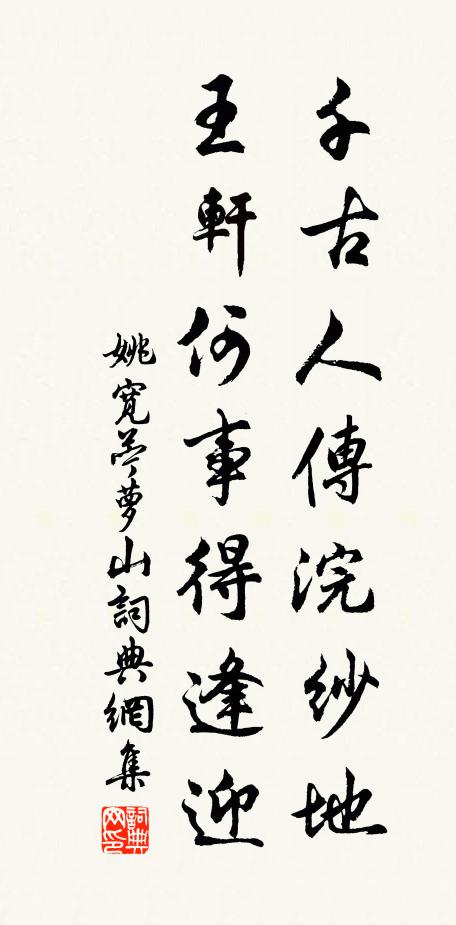 千古人傳浣紗地
王軒何事得逢迎
姚寬苧夢山詞典網集
詞典網印